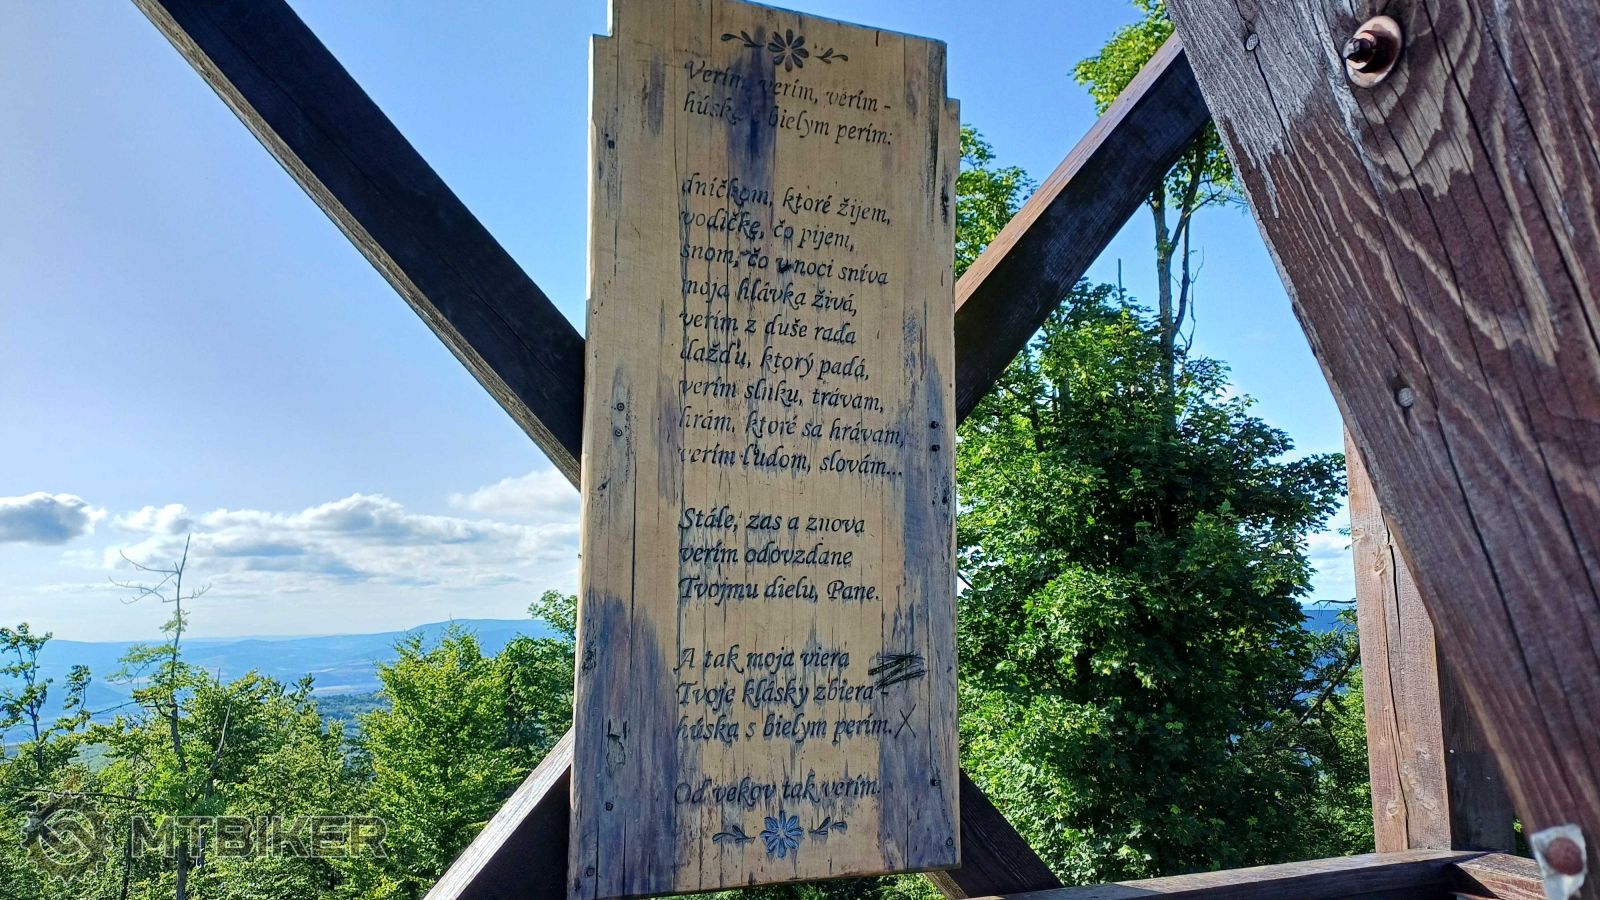 Verím, verím, verím -
húska s bielym perím:
dníčkom, ktoré žijem,
vodičke, čo pijem,
snom, čo v noci sníva
moja hlávka živá,
verím z duše rada
dažďu, ktorý padá,
verím slnku, trávam,
hrám, ktoré sa hrávam,
verím ľuďom, slovám...
Stále, zas a znova
verím odovzdane
Tvojmu dielu, Pane.
A tak moja viera
Tvoje klásky zbiera -
húska s bielym perím.
Od vekov tak verím.
MTBIKER